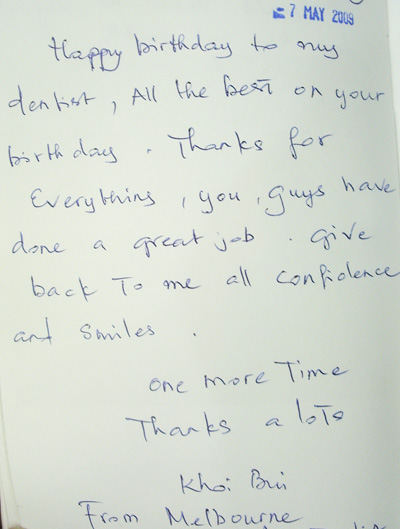 7 MAY 2009
Happy birthday to my
dentist, All the best on your
birthday. Thanks for
Everything, you, guys have
done a great job. give
back To me all confidence
and smiles.
one more Time
Thanks a loTs
Khoi Bui
From Melbourne